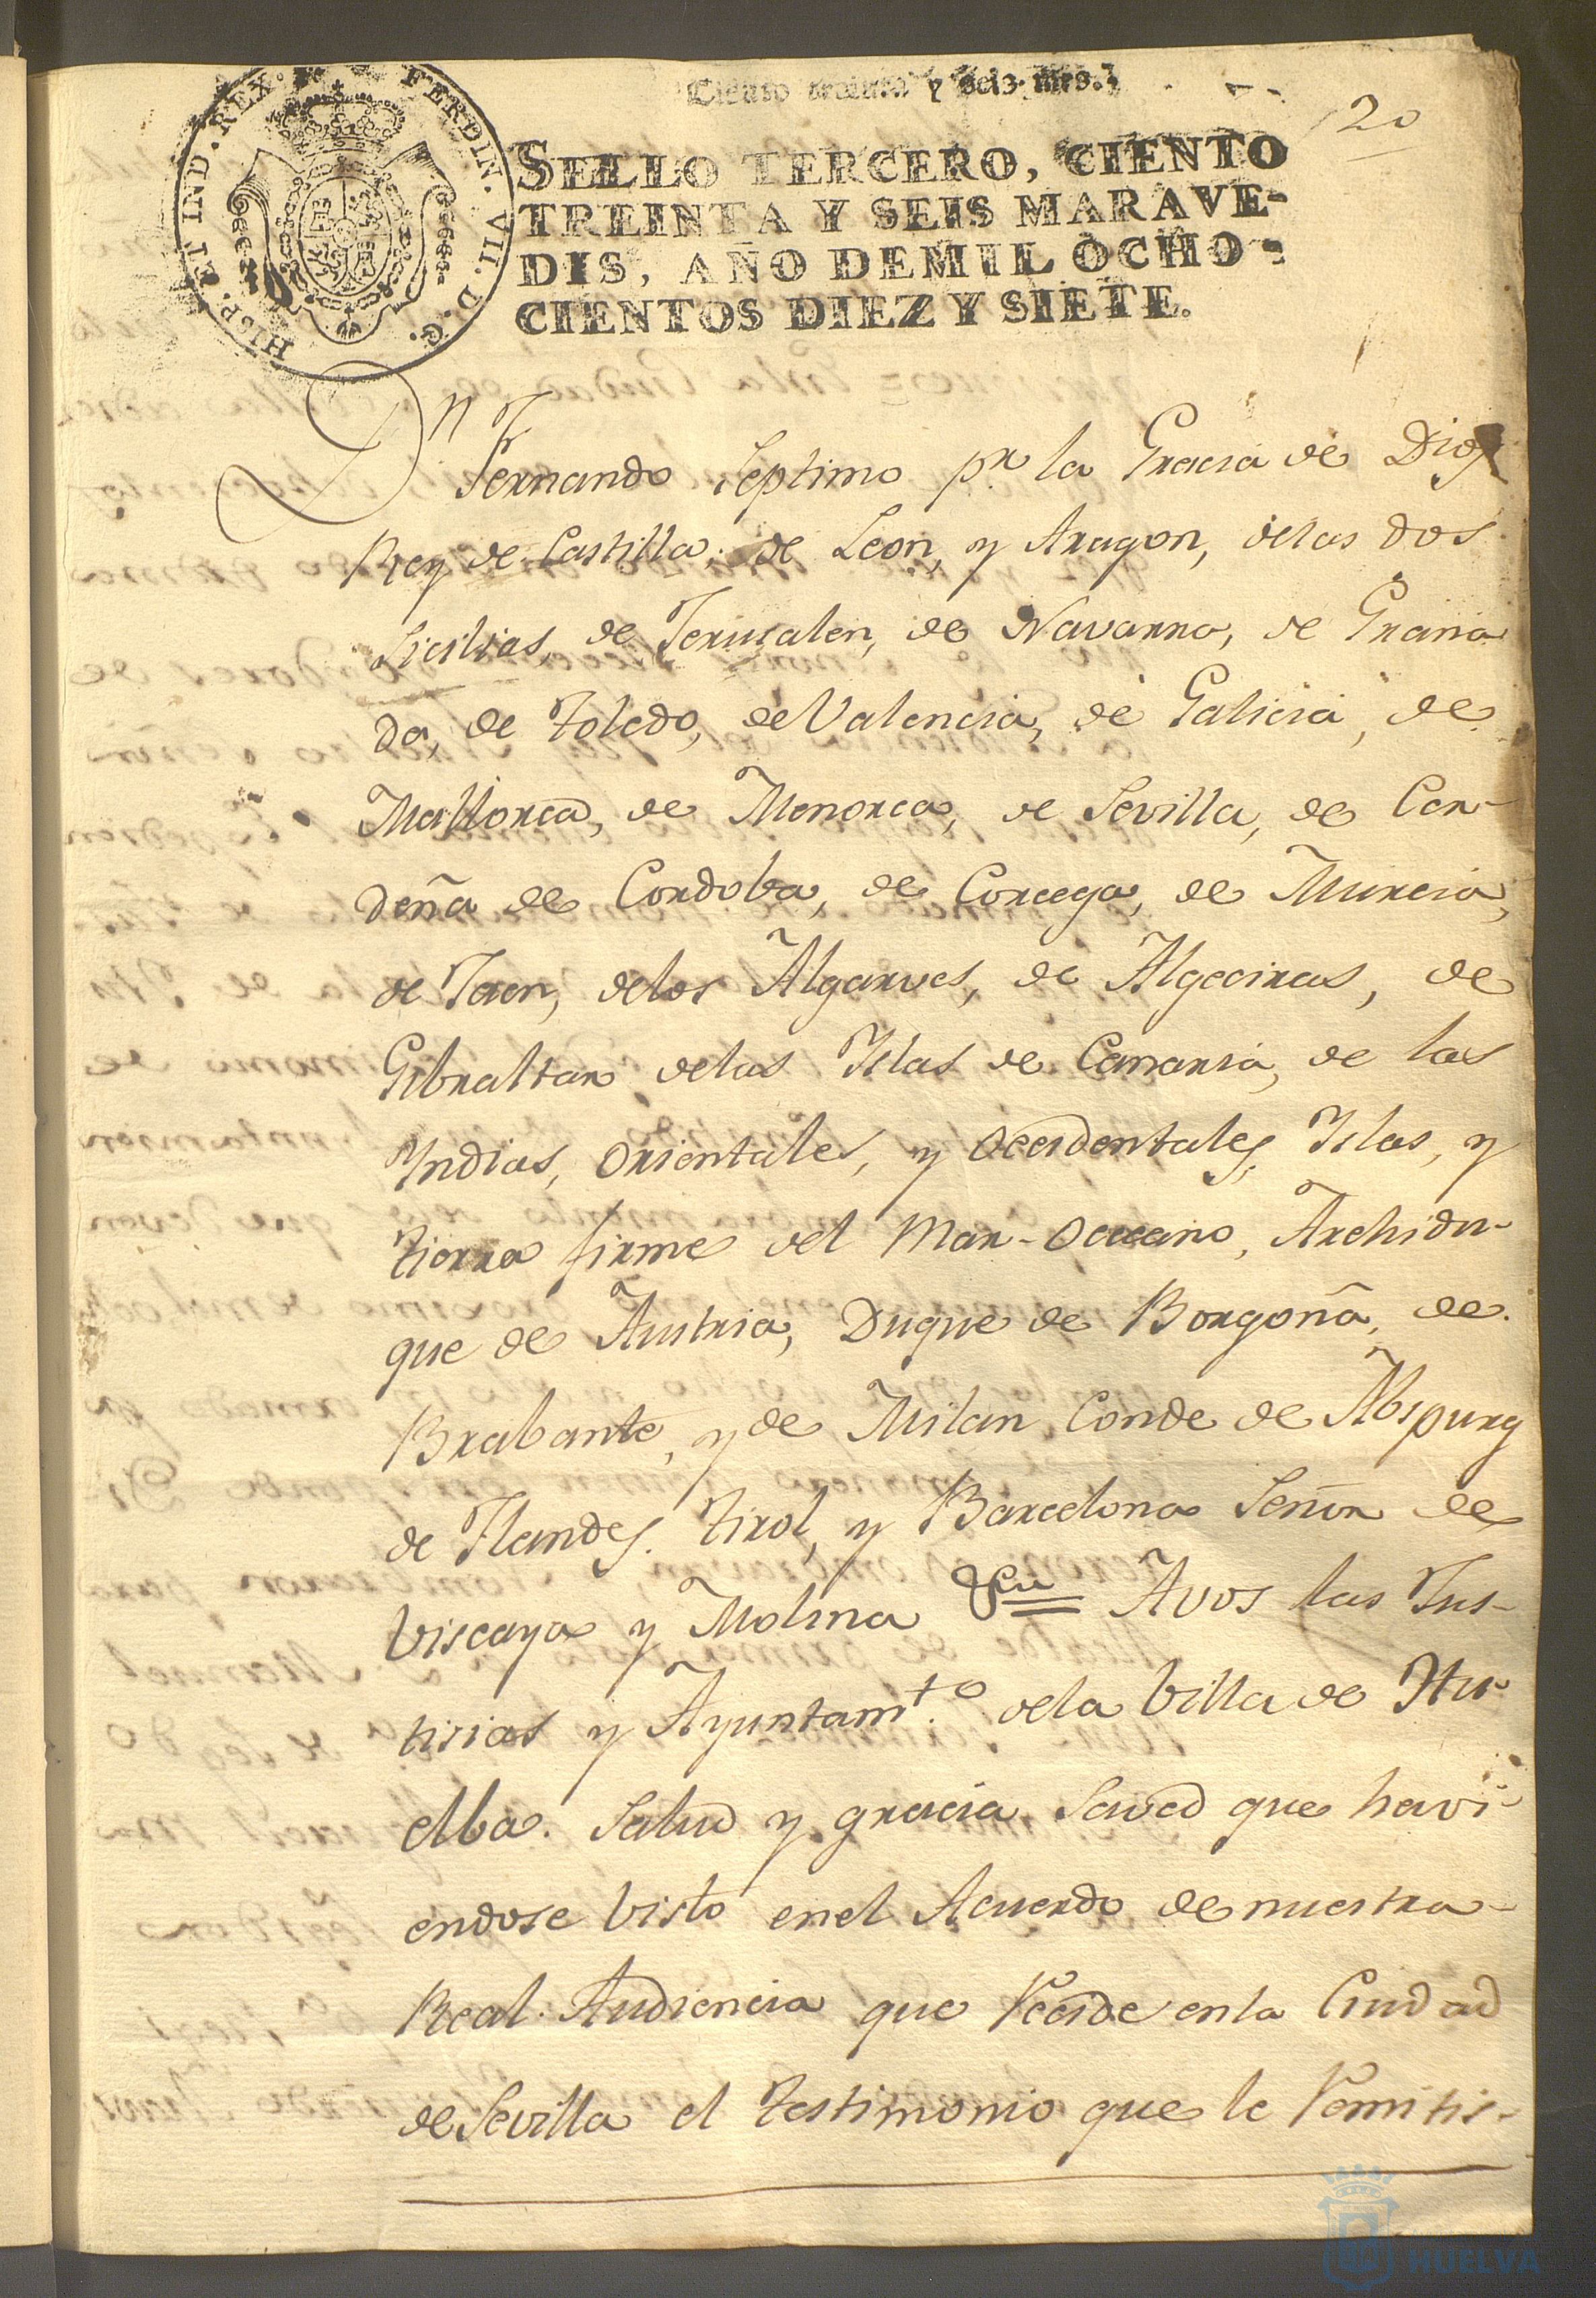 Ciento treinta y seis mrs.
120
HISP. ET IND. REX. FERDIN. VII. D. G.
SELLO TERCERO, CIENTO
TREINTA Y SEIS MARAVE-
DIS, AÑO DE MIL OCHO-
CIENTOS DIEZ Y SIETE.
Dn Fernando Septimo pr. la Gracia de Dios
Rey de Castilla, de Leon, y Aragon, delas dos
Sicilias, de Jerusalen, de Navarra, de Grana-
da, de Toledo, de Valencia, de Galicia, de
Mallorca, de Menorca, de Sevilla, de Cer-
deña de Cordoba, de Corcega, de Murcia,
de Jaen, delos Algarves, de Algeciras, de
Gibraltar delas Yslas de Canaria, de las
Yndias, Orientales, y Occidentales, Yslas, y
tierra firme del Mar-Occeano, Archidu-
que de Austria, Duque de Borgoña, de
Brabante, y de Milan, Conde de Abspurg
de Flandes. Tirol, y Barcelona Señor de
Viscaya y Molina &ca Avos las Jus-
ticias y Ayuntamto. dela Villa de Hu-
elba. Salud y gracia Saved que havi-
endose visto enel Acuerdo de nuestra
Real Audiencia que Recide enla Ciudad
de Sevilla el testimonio que le Remitis-
HUELVA